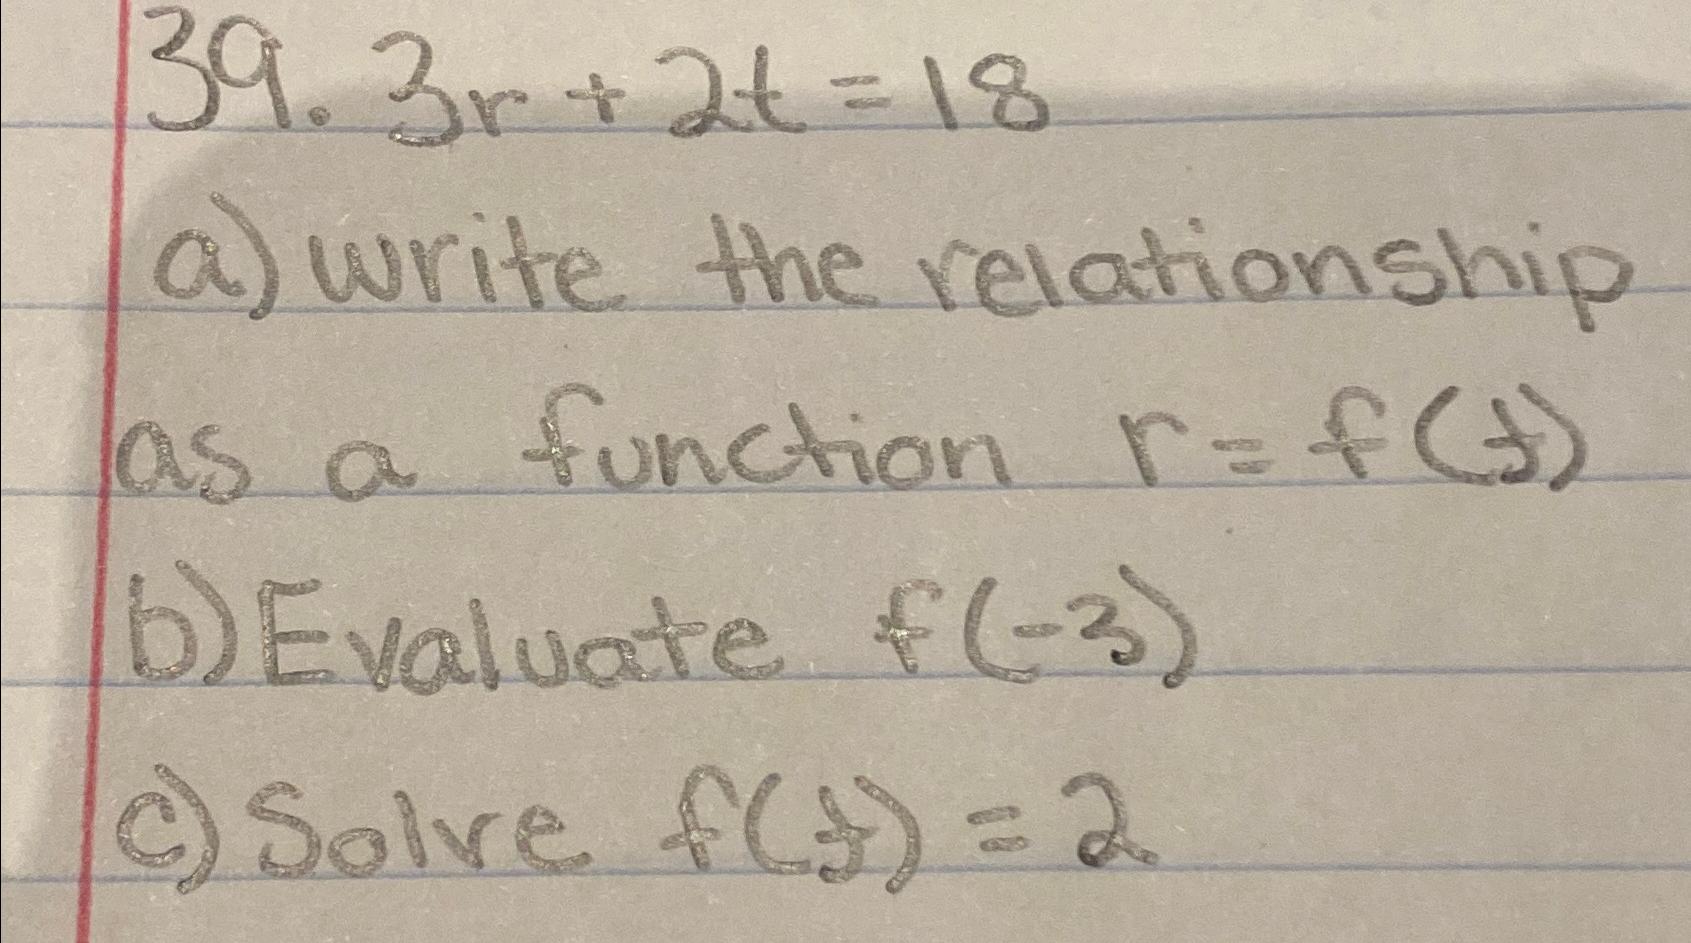 39. 3r + 2t = 18
a) write the relationship
as a function r = f(t)
b) Evaluate f(-3)
c) Solve f(t) = 2